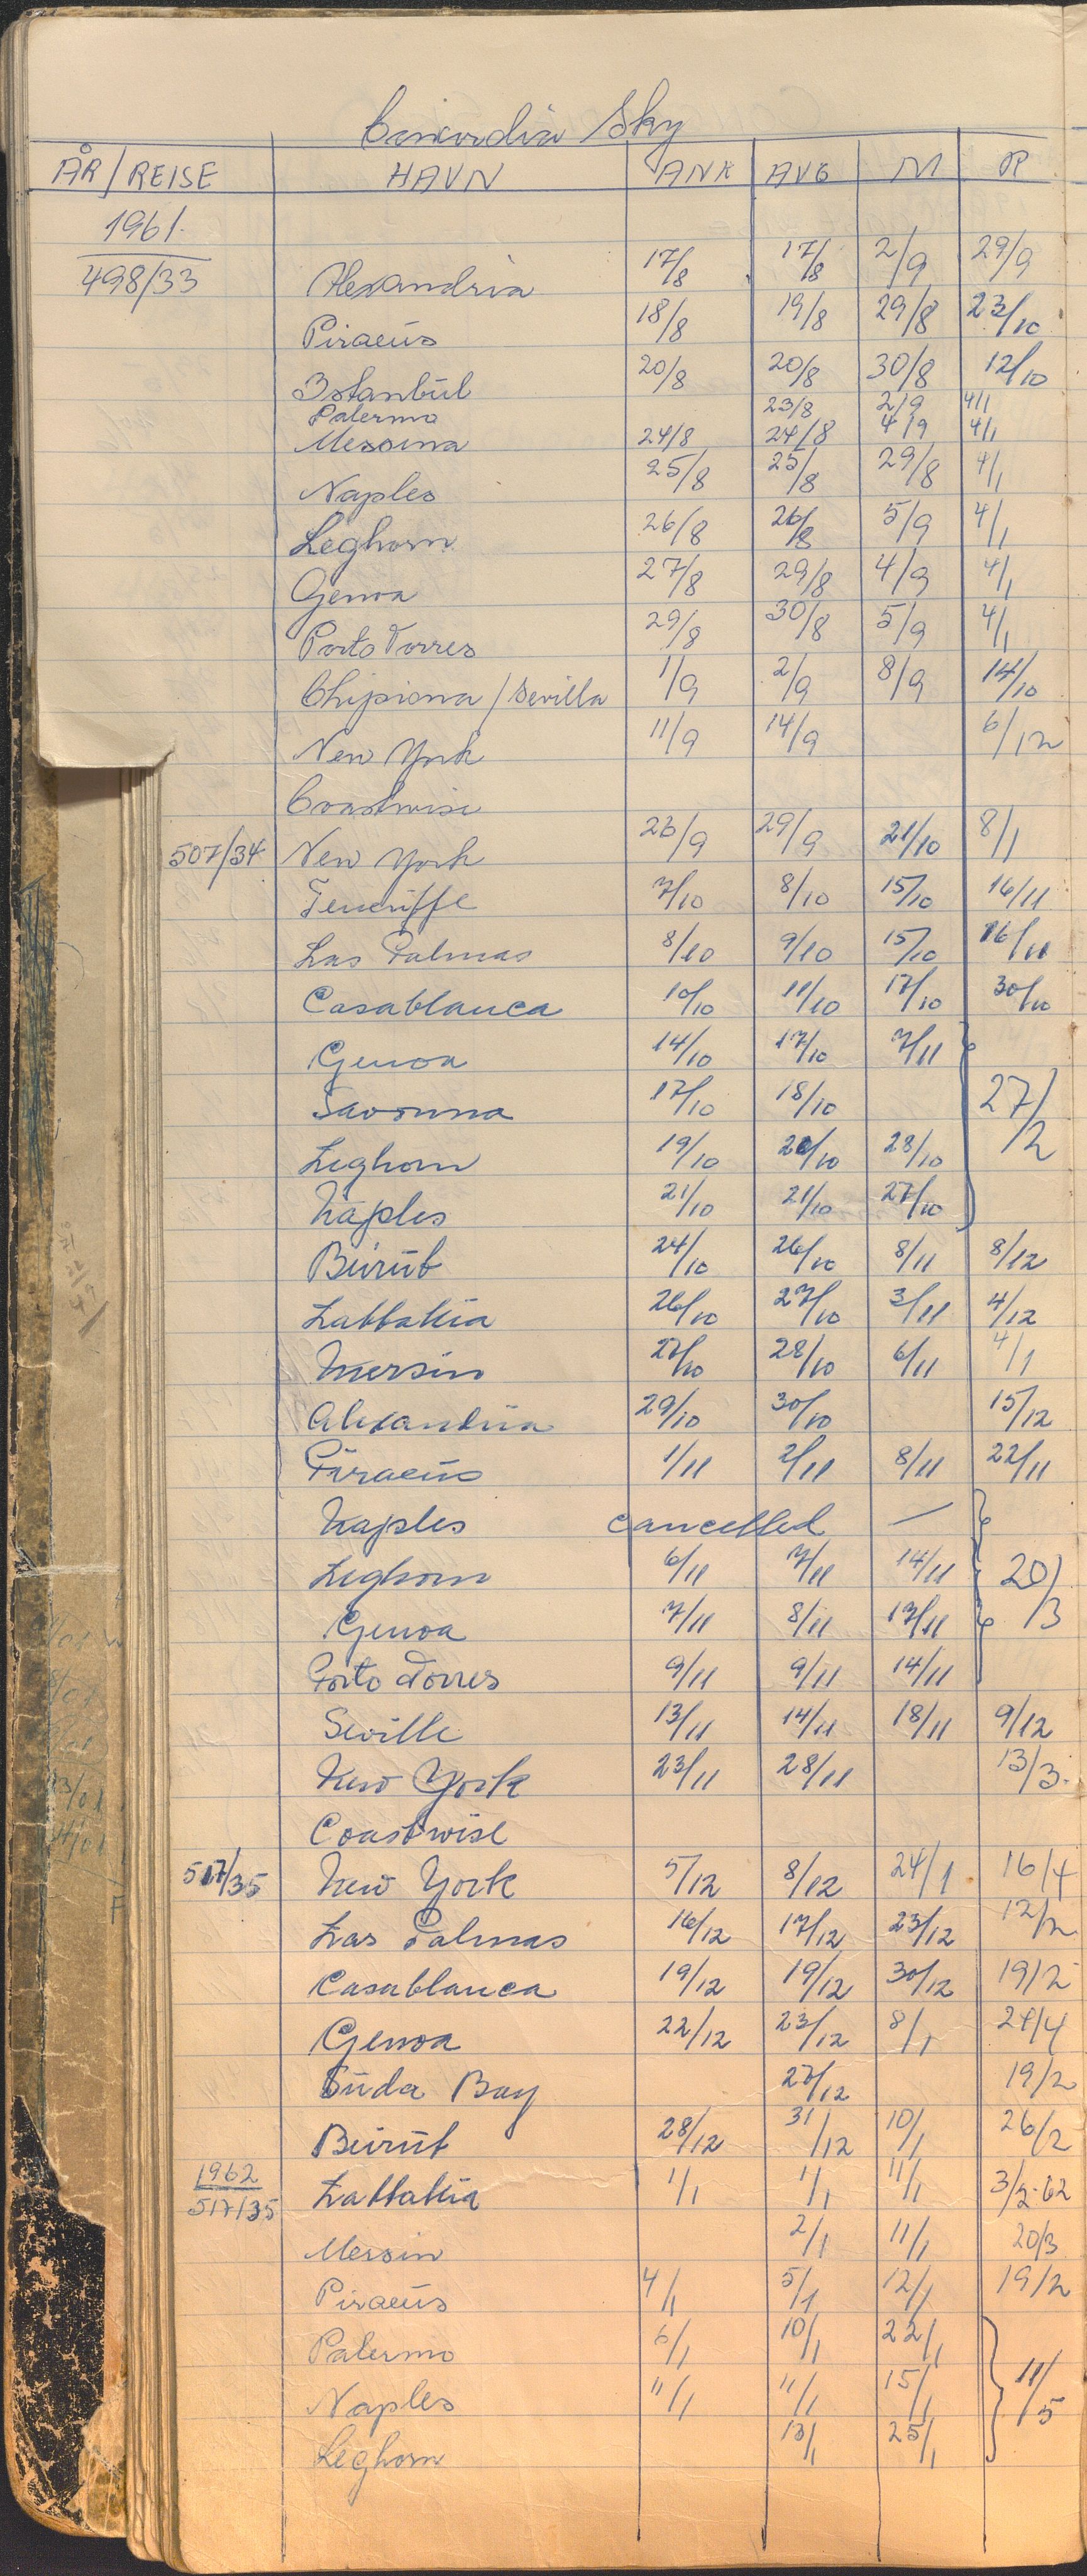 Concordia Sky
ÅR/REISE HAVN ANK AVG M R
1961
498/33 Alexandria 17/8 17/8 2/9 29/9
Piraeus 18/8 19/8 29/8 23/10
Istanbul 20/8 20/8 30/8 12/10
Palermo 23/8 2/9 4/1
Messina 24/8 24/8 4/9 4/1
Naples 25/8 25/8 29/8 4/1
Leghorn 26/8 26/8 5/9 4/1
Genoa 27/8 29/8 4/9 4/1
Porto Torres 29/8 30/8 5/9 4/1
Chipiona/Sevilla 1/9 2/9 8/9 14/10
New York 11/9 14/9 6/12
Coastwise
507/34 New York 26/9 29/9 21/10 8/1
Teneriffe 7/10 8/10 15/10 16/11
Las Palmas 8/10 9/10 15/10 16/11
Casablanca 10/10 11/10 17/10 30/10
Genoa 14/10 17/10 7/11
Savonna 17/10 18/10 27/2
Leghorn 19/10 20/10 28/10
Naples 21/10 21/10 27/10
Beirut 24/10 26/10 8/11 8/12
Lattakia 26/10 27/10 3/11 4/12
Mersin 27/10 28/10 6/11 4/1
Alexandria 29/10 30/10 15/12
Piraeus 1/11 2/11 8/11 22/11
Naples cancelled —
Leghorn 6/11 7/11 14/11 20/3
Genoa 7/11 8/11 17/11
Porto Torres 9/11 9/11 14/11
Seville 13/11 14/11 18/11 9/12
New York 23/11 28/11 13/3.
Coastwise
517/35 New York 5/12 8/12 24/1 16/4
Las Palmas 16/12 17/12 23/12 12/2
Casablanca 19/12 19/12 30/12 19/2
Genoa 22/12 23/12 8/1 24/4
Suda Bay 27/12 19/2
Beirut 28/12 31/12 10/1 26/2
1962
517/35 Lattakia 1/1 1/1 11/1 3/2-62
Mersin 2/1 11/1 20/3
Piraeus 4/1 5/1 12/1 19/2
Palermo 6/1 10/1 22/1
Naples 11/1 11/1 15/1 11/5
Leghorn 13/1 25/1